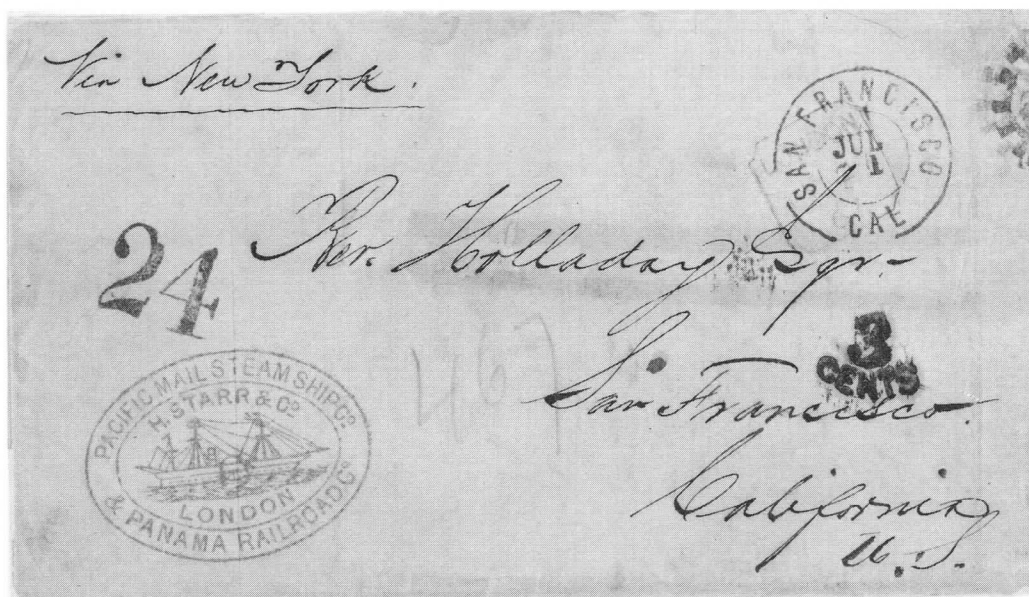 Via New York.
SAN FRANCISCO
JUL
1
CAL
24
Holladay Esqr.
3
CENTS
San Francisco
California
U.S.
PACIFIC MAIL STEAM SHIP Co
H. STARR & Co
LONDON
& PANAMA RAILROAD Co